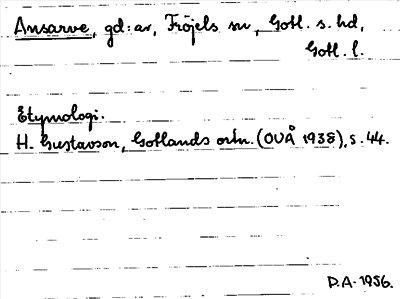 Ansarve, gd:ar, Fröjels sn, Gotl. s. hd,
Gotl. l.
Etymologi.
H. Gustavson, Gotlands ortn. (OUÅ 1938), s. 44.
D.A. 1956.